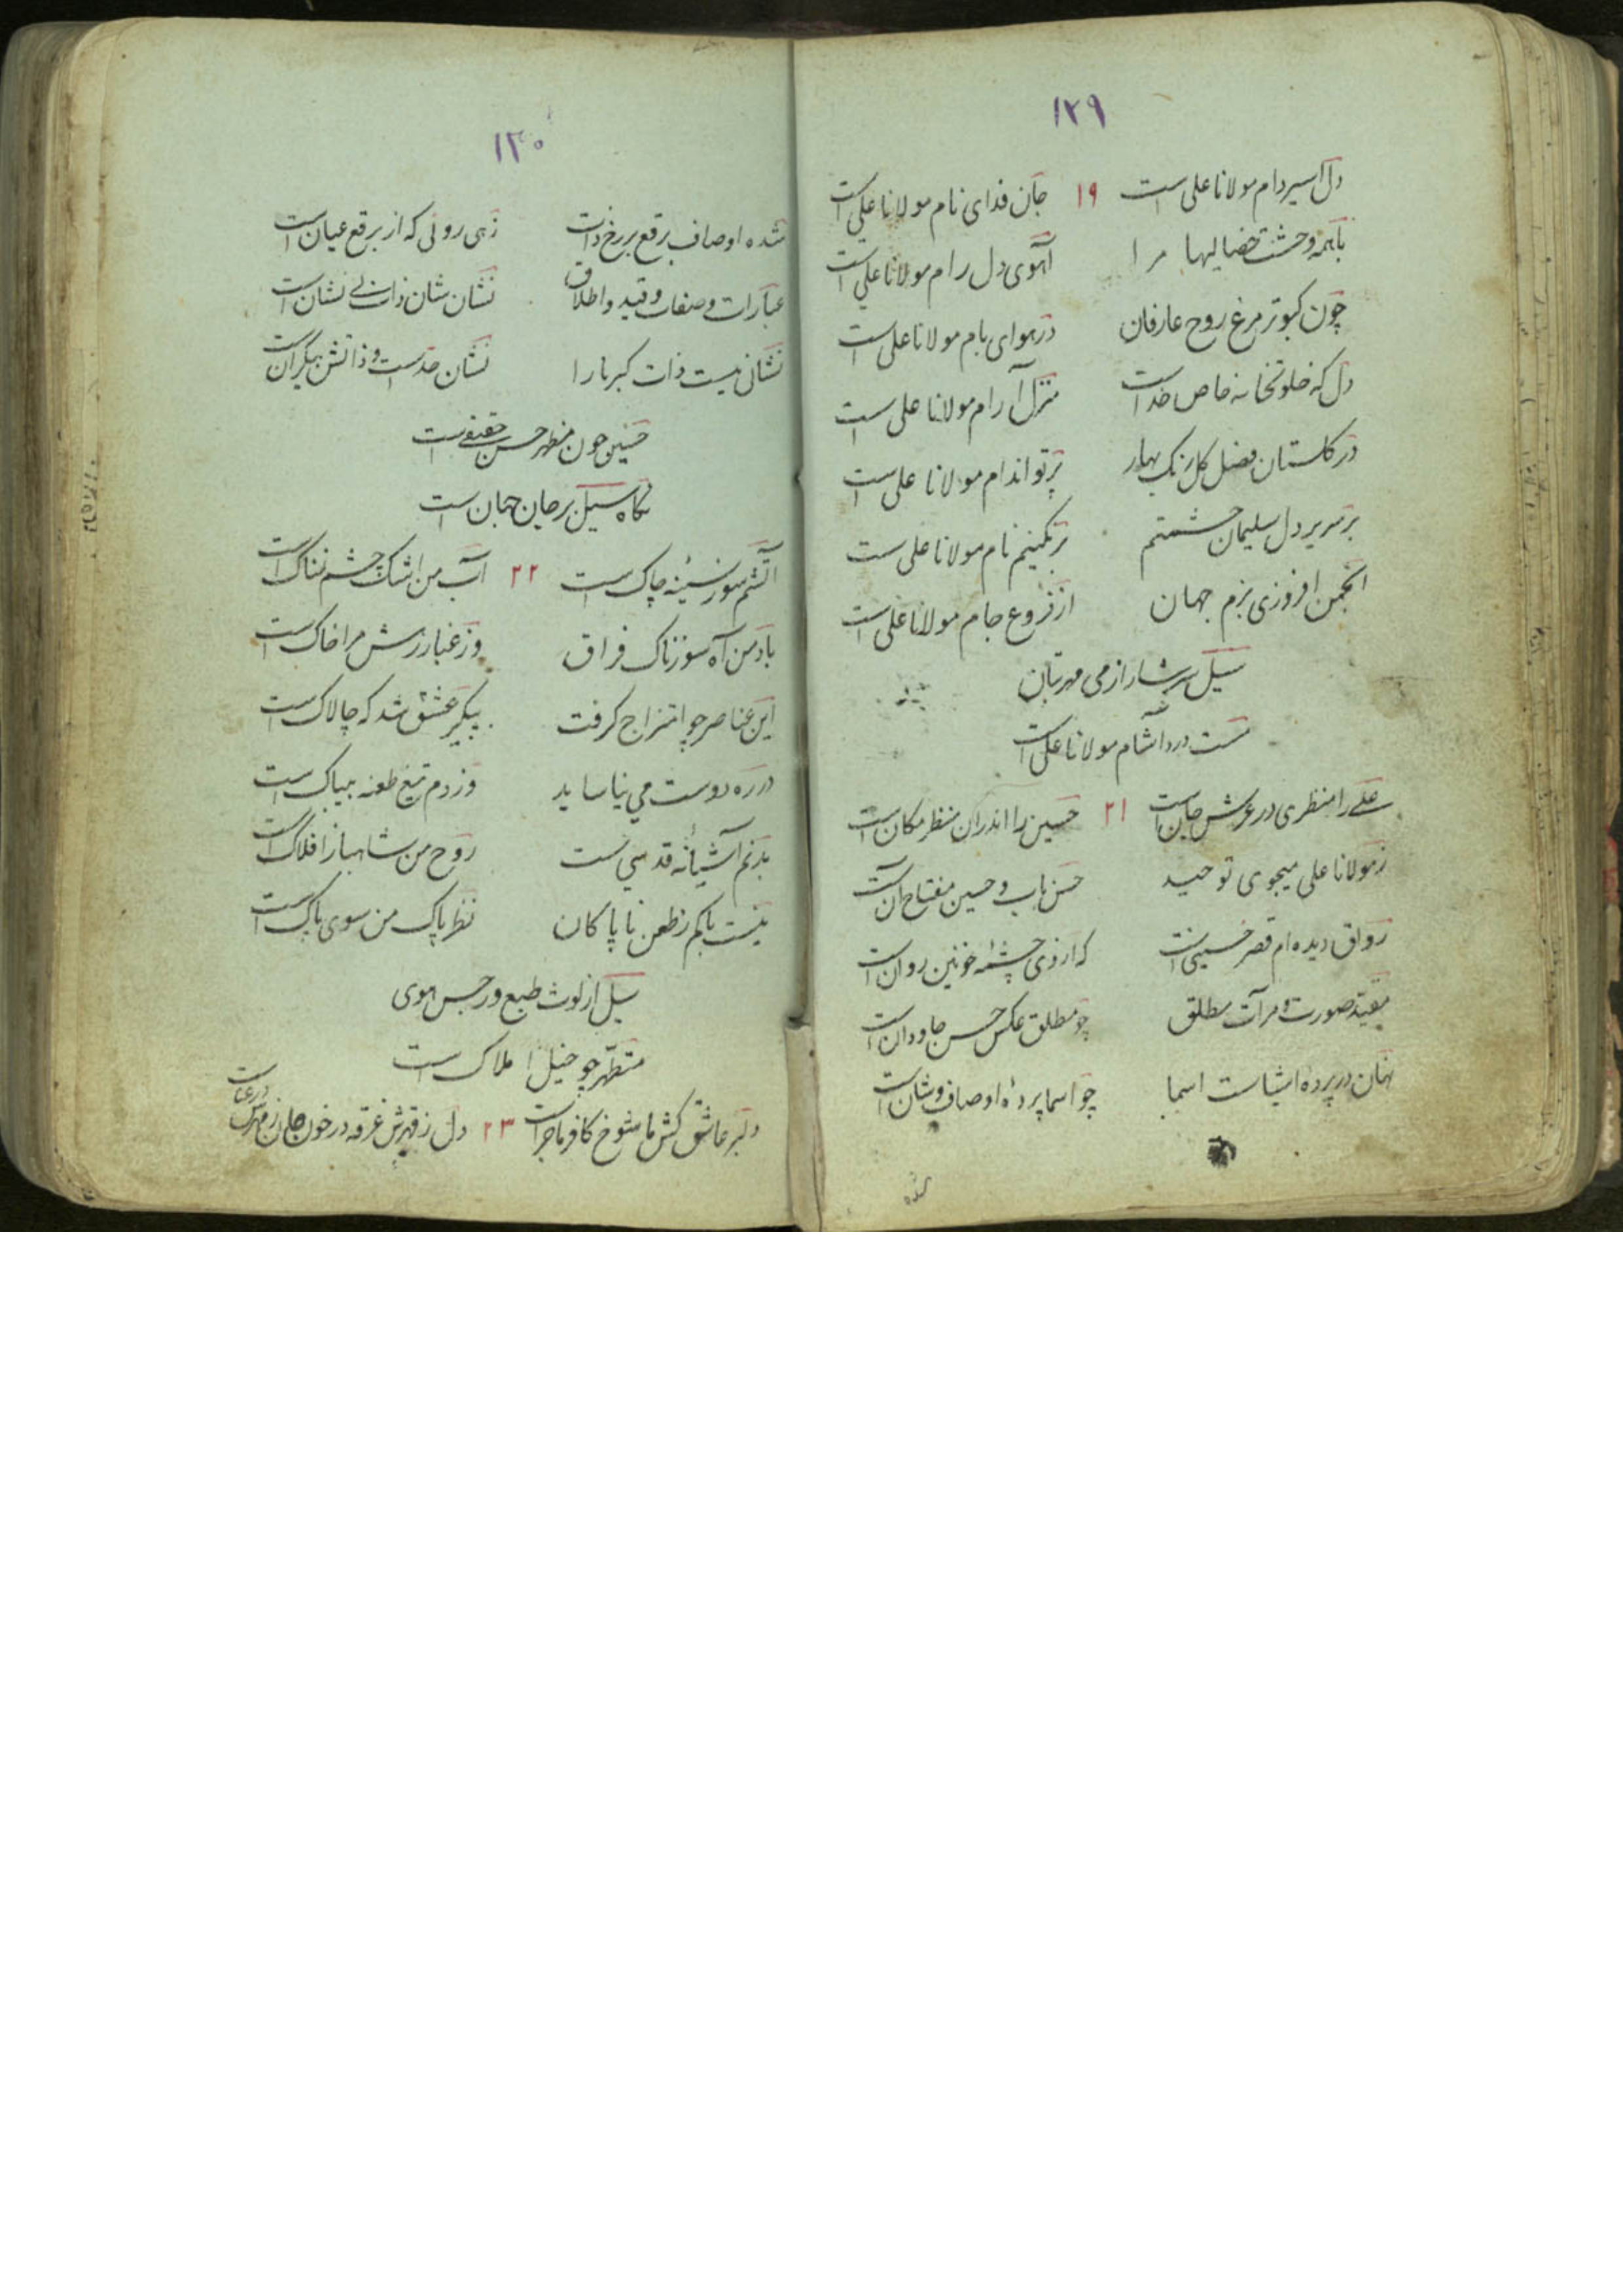 ۱۲۹
دل اسیر دام مولانا علی است ۱۹ جان فدای نام مولانا علی است
باهمه وحشت خصالیها مرا آهوی دل رام مولانا علی است
چون کبوتر مرغ روح عارفان در هوای بام مولانا علی است
دل که خلوتخانه خاص خداست منزل آرام مولانا علی است
در گلستان فضل گل رنگ بهار پرتو اندام مولانا علی است
بر سریر دل سلیمان حشمتم بر نگینم نام مولانا علی است
انجمن افروزی بزم جهان از فروغ جام مولانا علی است
سیل سرشار از می مهرتبان
مست درد آشام مولانا علی است
علی را منظری در عرش جان است ۲۱ حسین را اندران منظر مکان است
ز مولانا علی میجوی توحید حسن باب و حسین مفتاح آن است
رواق دیده ام قصر حسینی است که از وی چشمهٔ خونین روان است
مقید صورت و مرآت مطلق چو مطلق عکس حسن جاودان است
نهان در پرده اشیاست اسما چو اسما پردهٔ اوصاف و شان است
شده
۱۳۰
شده اوصاف برقع بر رخ ذات زهی روئی که از برقع عیان است
عبارات و صفات و قید و اطلاق نشان شان ذات بی نشان است
نشانی نیست ذات کبریا را نشان حدست و ذاتش بیکران است
حسین چون مظهر حسن حقیقی است
نگاه سیل بر جان جهان است
آتشم سوز سینهٔ چاک است ۲۲ آب من اشک چشم نمناک است
باد من آه سوزناک فراق وز غبار رهش مرا خاک است
این عناصر چو امتزاج گرفت پیکر عشق شد که چالاک است
در ره دوست می نیاساید وز دم تیغ طعنه بیباک است
بدنم آشیانهٔ قدسی است روح من شاهباز افلاک است
نیست باکم ز طعن ناپاکان نظر پاک من سوی پاک است
سیل از لوث طبع و رجس هوی
متطهر چو خیل املاک است
دلبر عاشق کش ما شوخ کافر ماجراست ۲۳ دل ز قهرش غرقه در خون جان ز مهرش